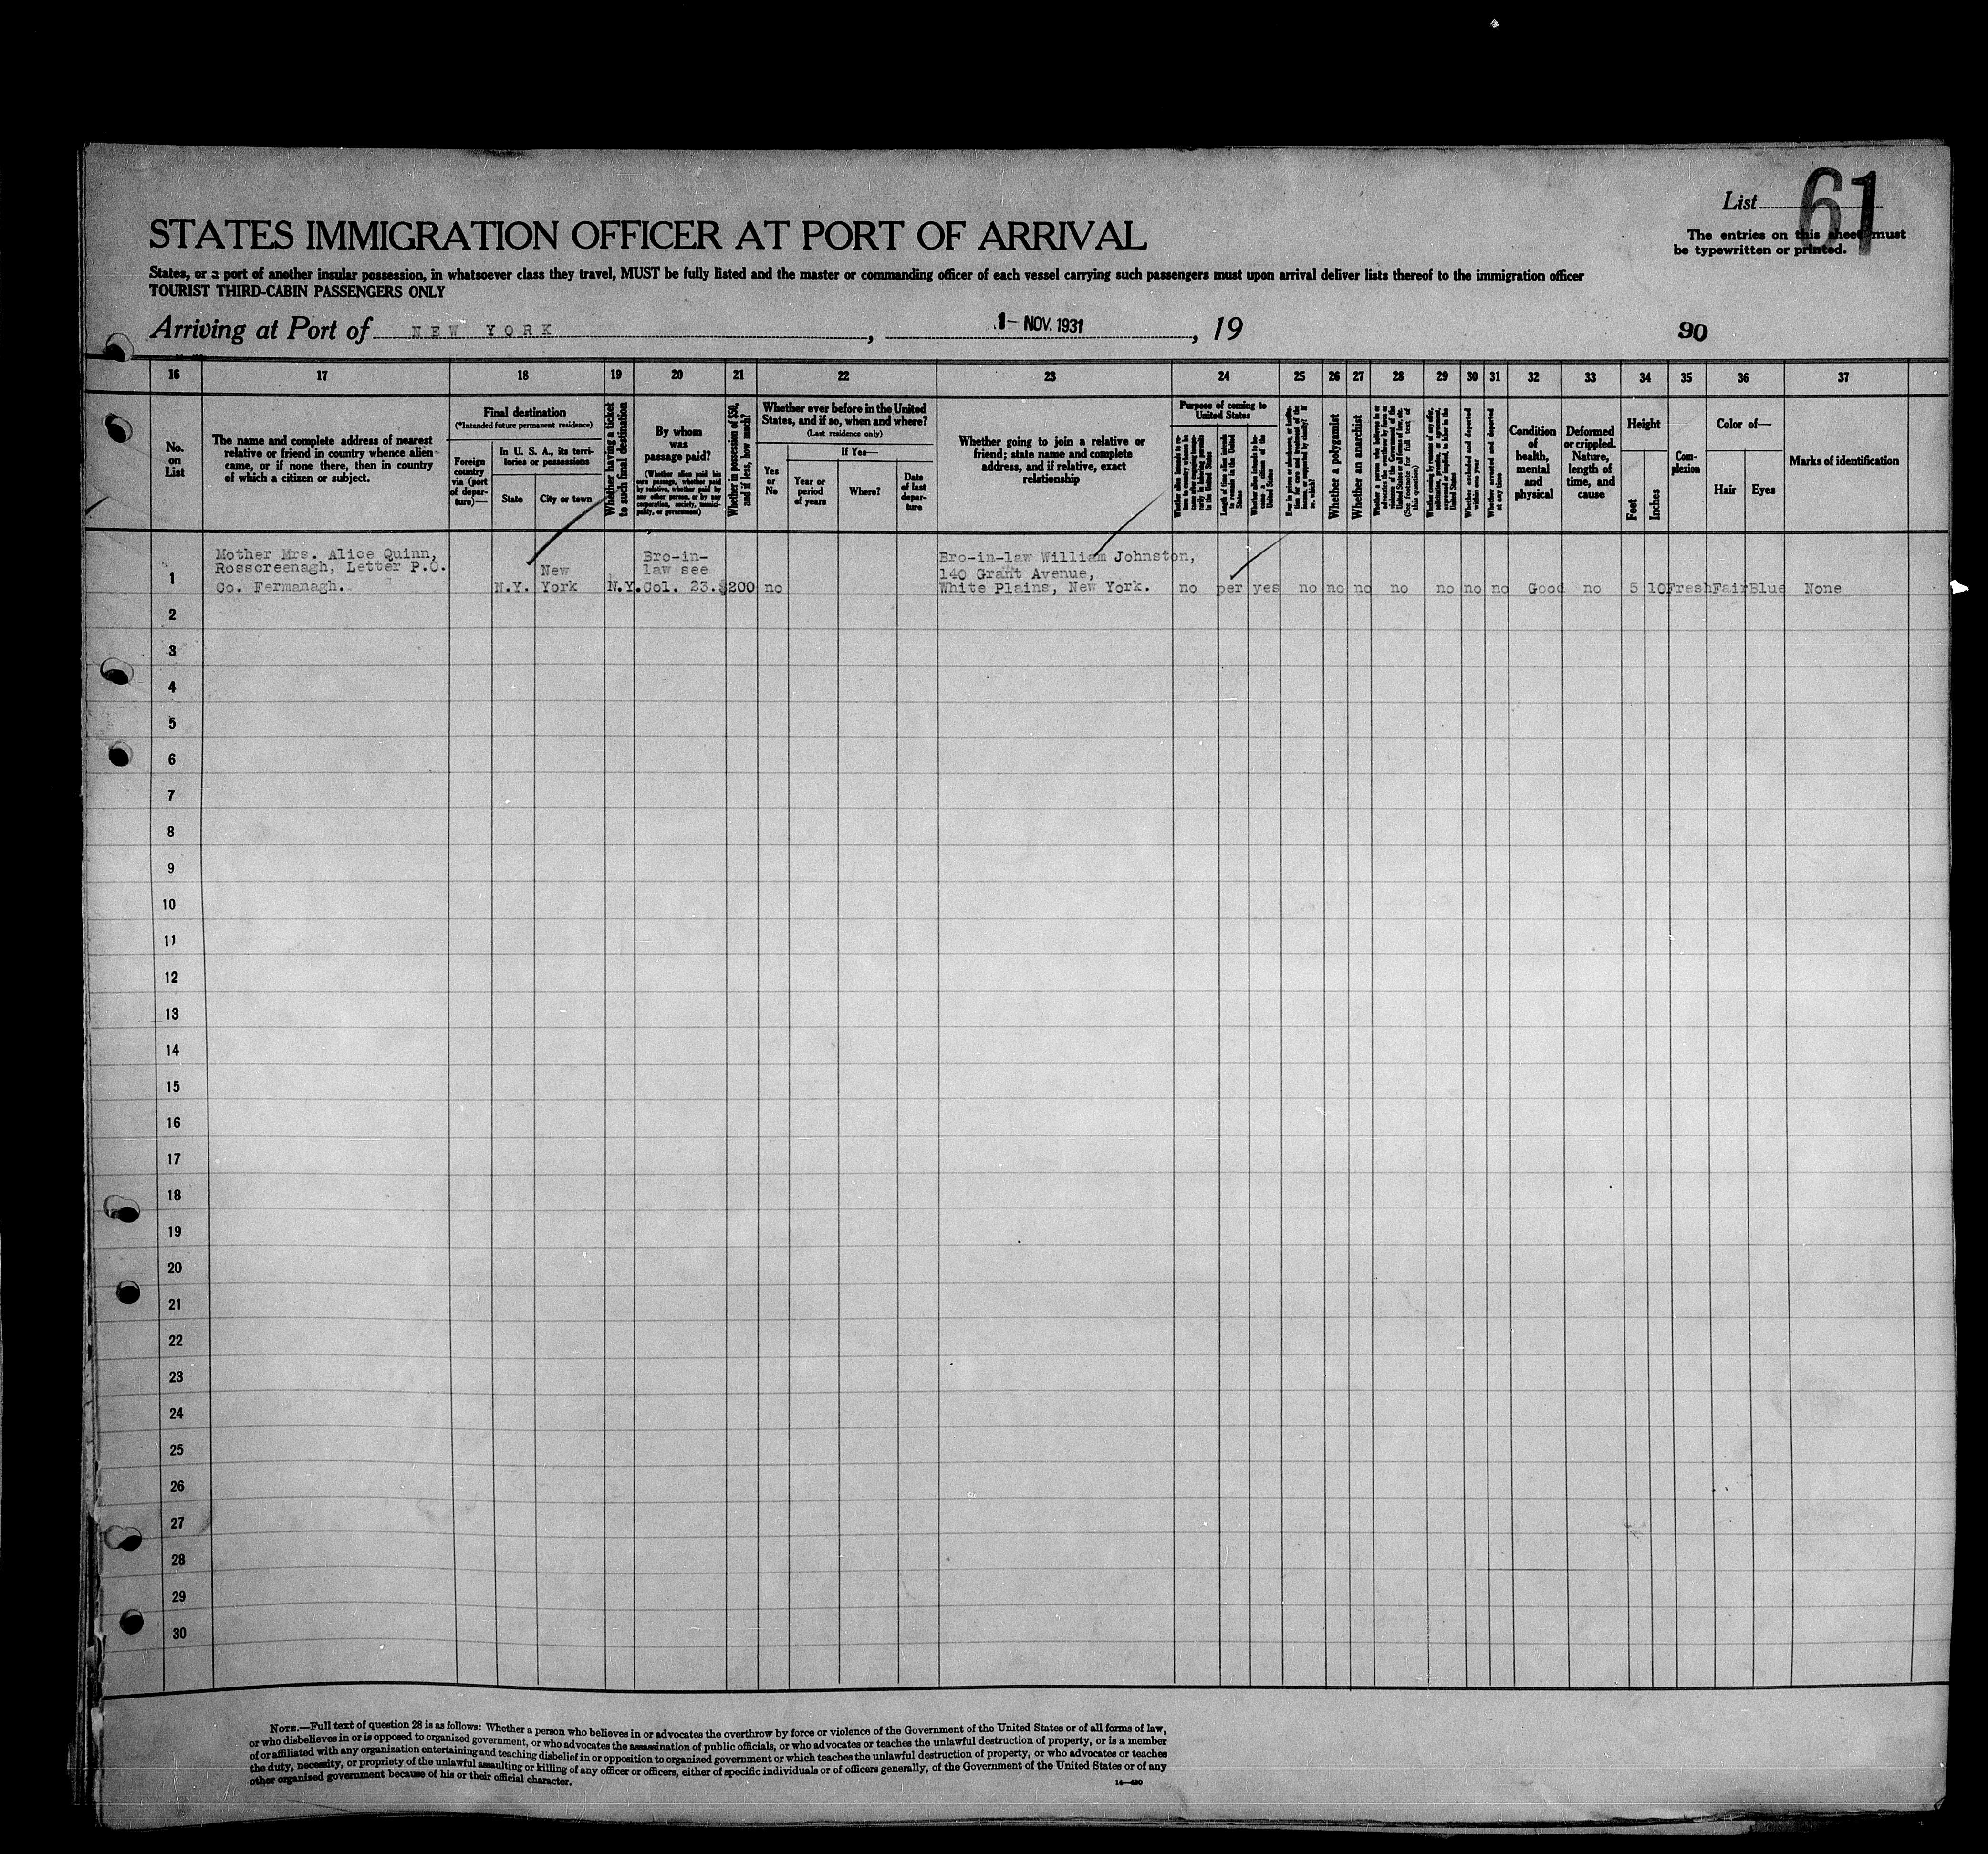 List 61
The entries on this sheet must
be typewritten or printed.
STATES IMMIGRATION OFFICER AT PORT OF ARRIVAL
States, or a port of another insular possession, in whatsoever class they travel, MUST be fully listed and the master or commanding officer of each vessel carrying such passengers must upon arrival deliver lists thereof to the immigration officer
TOURIST THIRD-CABIN PASSENGERS ONLY
Arriving at Port of NEW YORK, 1- NOV. 1931, 19
90
16 17 18 19 20 21 22 23 24 25 26 27 28 29 30 31 32 33 34 35 36 37
No.
on
List
The name and complete address of nearest
relative or friend in country whence alien
came, or if none there, then in country
of which a citizen or subject.
Final destination
(*Intended future permanent residence)
Foreign
country
via (port
of depar-
ture)—
In U. S. A., its terri-
tories or possessions
State
City or town
Whether having a ticket
to such final destination
By whom
was
passage paid?
(Whether alien paid his
own passage, whether paid
by relative, whether paid by
any other person, or by any
corporation, society, munici-
pality, or government)
Whether in possession of $50,
and if less, how much?
Whether ever before in the United
States, and if so, when and where?
(Last residence only)
Yes
or
No
If Yes—
Year or
period
of years
Where?
Date
of last
depar-
ture
Whether going to join a relative or
friend; state name and complete
address, and if relative, exact
relationship
Purpose of coming to
United States
Length of time alien intends
to remain in the United
States
Whether a polygamist
Whether an anarchist
(See footnote for full text of
this question)
Whether excluded and deported
within one year
Whether arrested and deported
at any time
Condition
of
health,
mental
and
physical
Deformed
or crippled.
Nature,
length of
time, and
cause
Height
Feet
Inches
Com-
plexion
Color of—
Hair
Eyes
Marks of identification
Mother Mrs. Alice Quinn,
Rosscreenagh, Letter P.O.
Co. Fermanagh.
1
N.Y.
New
York
N.Y.
Bro-in-
law see
Col. 23.
$200
no
Bro-in-law William Johnston,
140 Grant Avenue,
White Plains, New York.
no per yes no no no no no no no Good no 5 10 Fresh Fair Blue None
2
3
4
5
6
7
8
9
10
11
12
13
14
15
16
17
18
19
20
21
22
23
24
25
26
27
28
29
30
NOTE.—Full text of question 28 is as follows: Whether a person who believes in or advocates the overthrow by force or violence of the Government of the United States or of all forms of law,
or who disbelieves in or is opposed to organized government, or who advocates the assassination of public officials, or who advocates or teaches the unlawful destruction of property, or is a member
of or affiliated with any organization entertaining and teaching disbelief in or opposition to organized government or which teaches the unlawful destruction of property, or who advocates or teaches
the duty, necessity, or propriety of the unlawful assaulting or killing of any officer or officers, either of specific individuals or of officers generally, of the Government of the United States or of any
other organized government because of his or their official character.
14—480